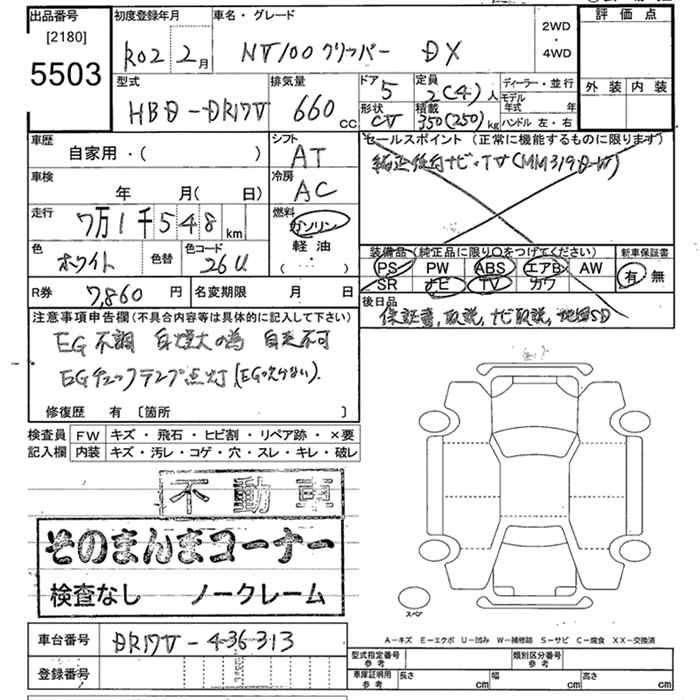 出品番号
[2180]
5503
初度登録年月
R02 2月
車名・グレード
NV100クリッパー DX
2WD
・
4WD
評価点
外装 内装
型式
HBD-DR17V
排気量
660 CC
ドア
5
形状
CV
定員
2(4)人
積載
350(250)kg
ディーラー・並行
モデル年式 年
ハンドル 左・右
車歴
自家用・( )
シフト
AT
車検
年 月( 日)
冷房
AC
走行
7万1千548km
燃料
ガソリン
軽油
( ・ )
色
ホワイト
色替
色コード
26U
R券 7,860円
名変期限 月 日
セールスポイント(正常に機能するものに限ります)
純正後付ナビ・TV(MM319D-W)
装備品(純正品に限り○をつけてください)
PS PW ABS エアB AW
SR ナビ TV カワ
新車保証書
有 無
後日品
保証書,取説,ナビ取説,地図SD
注意事項申告欄(不具合内容等は具体的に記入して下さい)
EG不調 自走不可
EGチェックランプ点灯
修復歴 有 [箇所 ]
検査員 FW キズ・飛石・ヒビ割・リペア跡・×要
記入欄 内装 キズ・汚レ・コゲ・穴・スレ・キレ・破レ
不動車
そのまんまコーナー
検査なし ノークレーム
スペア
A-キズ E-エクボ U-凹み W-補修跡 S-サビ C-腐食 XX-交換済
車台番号 DR17V-436313
登録番号
型式指定番号
参考
類別区分番号
参考
車庫証明用
参考
長さ cm
幅 cm
高さ cm